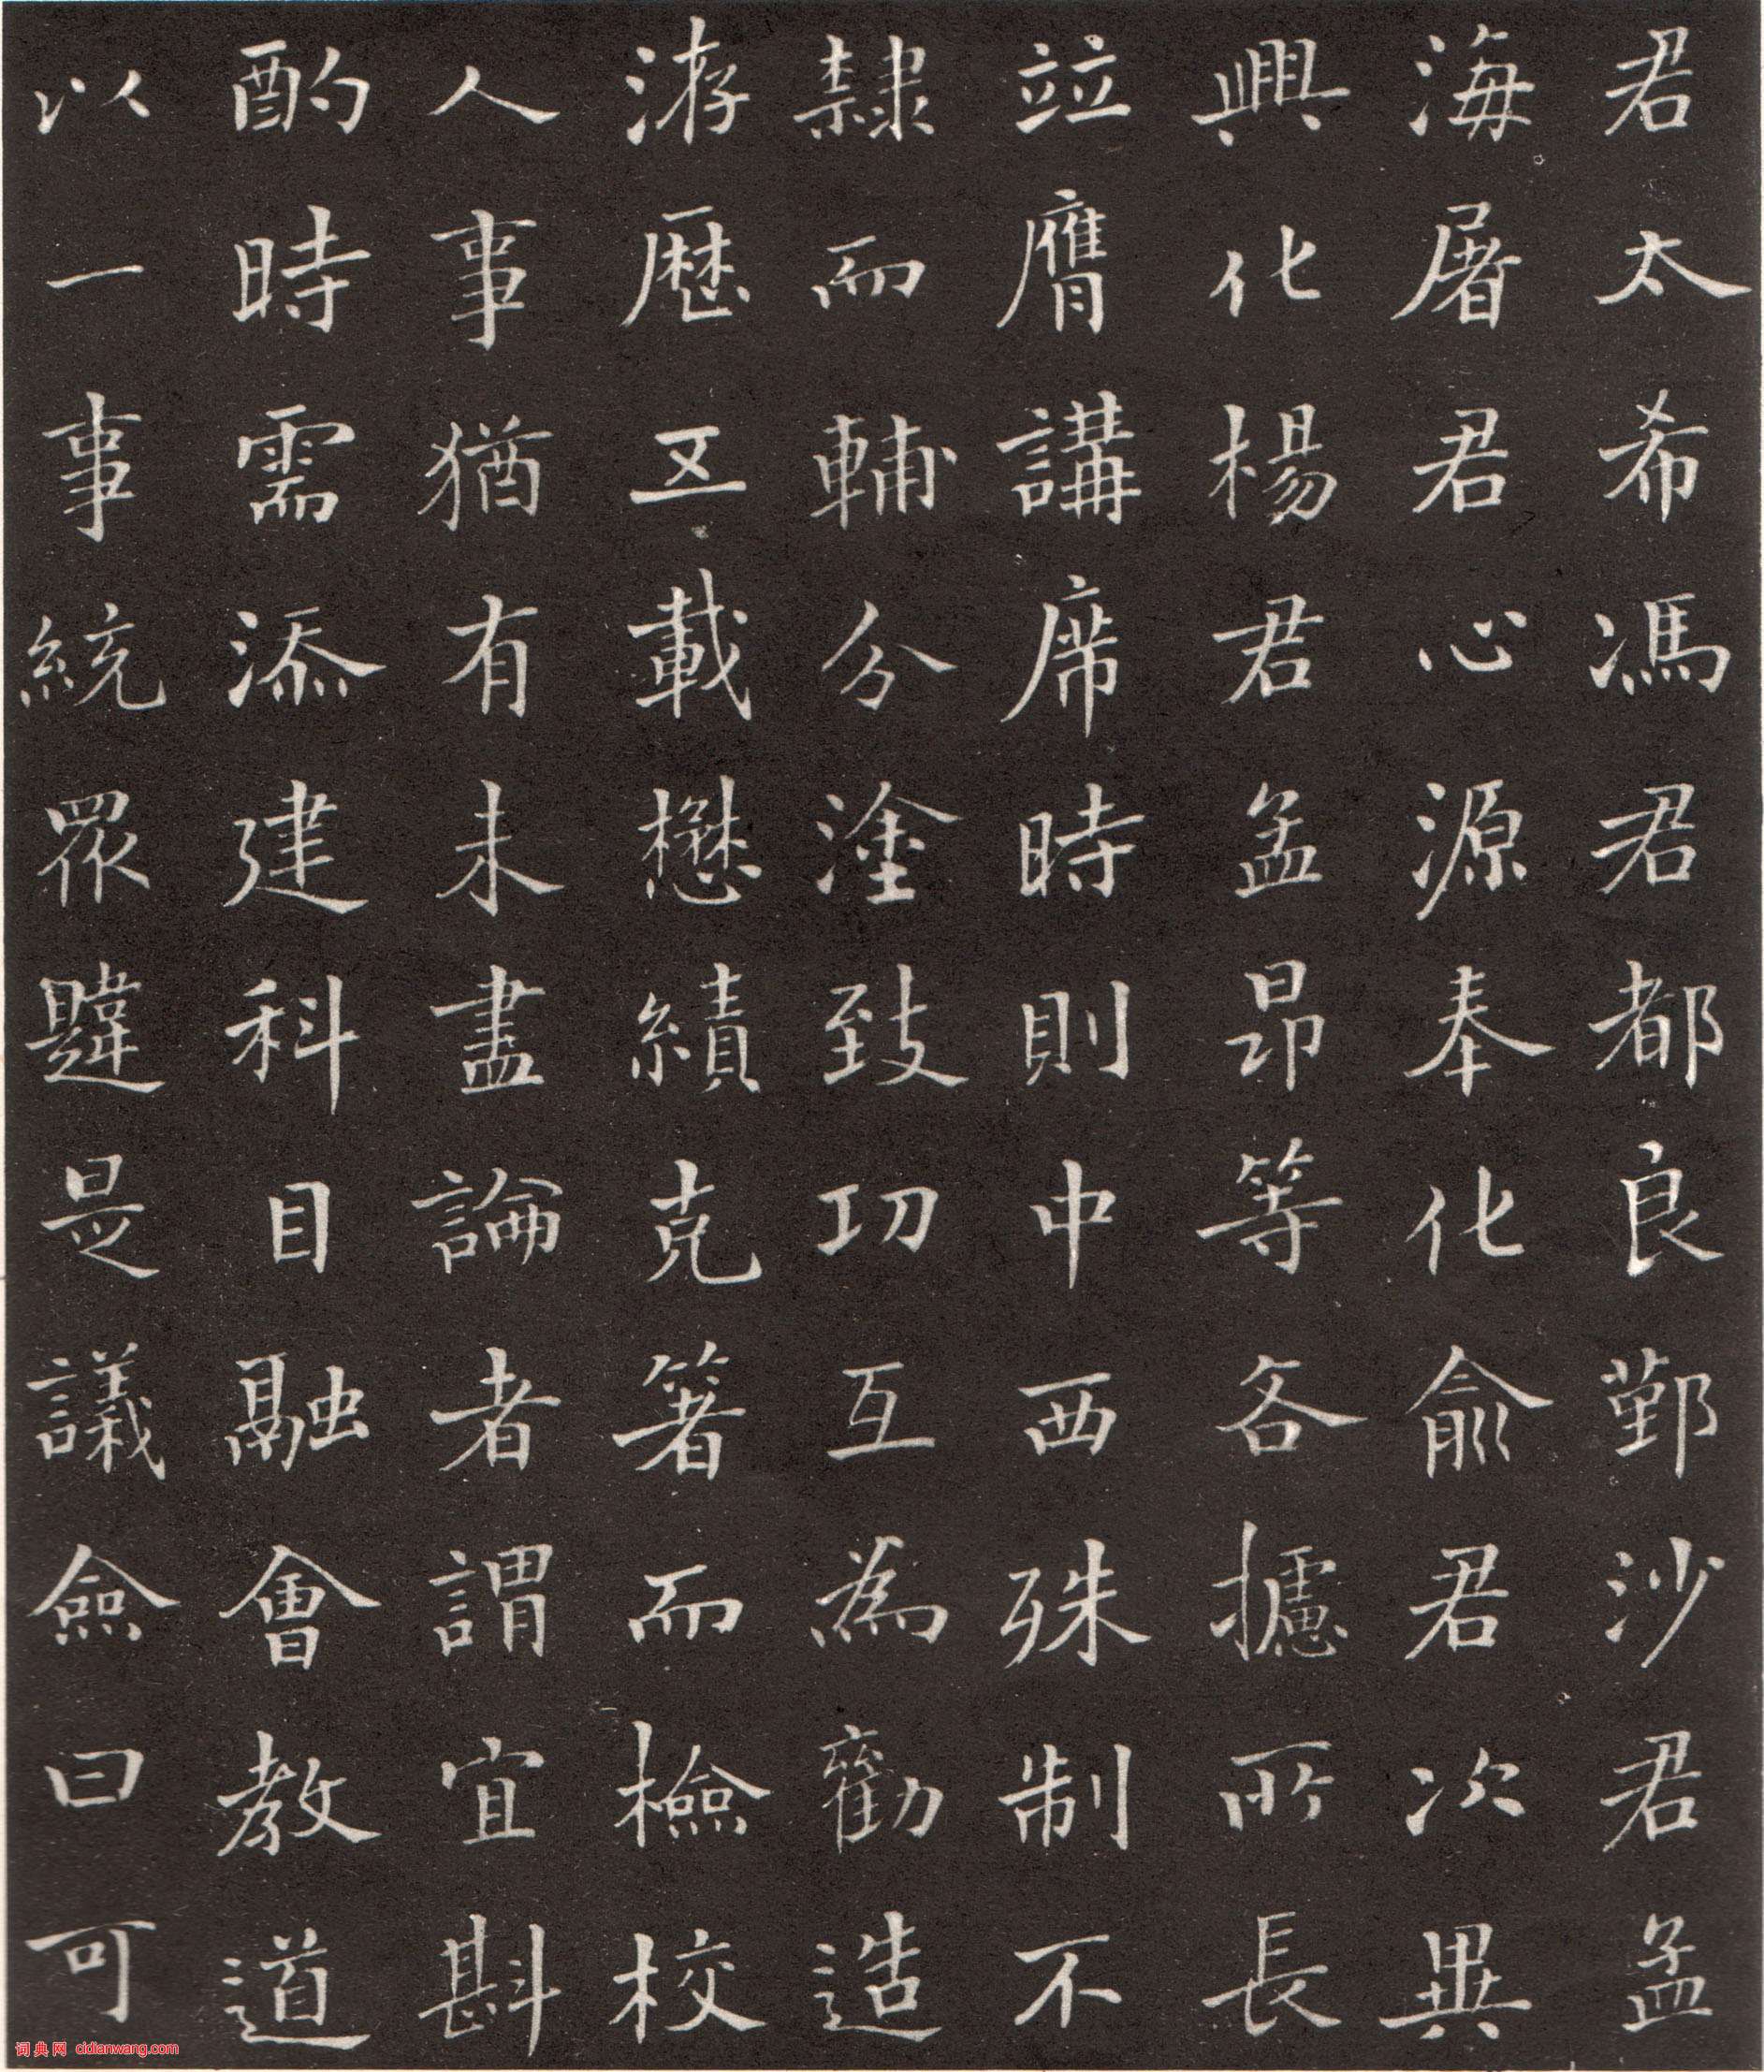 君太希馮君都良鄞沙君孟
海屠君心源奉化俞君次異
興化楊君孟昂等各攄所長
竝膺講席時則中西殊制不
隸而輔分塗致功互為勸造
洊歷五載懋績克箸而檢校
人事猶有未盡論者謂宜斟
酌時需添建科目融會教道
以一事統眾韙是議僉曰可
词典网 cidianwang.com